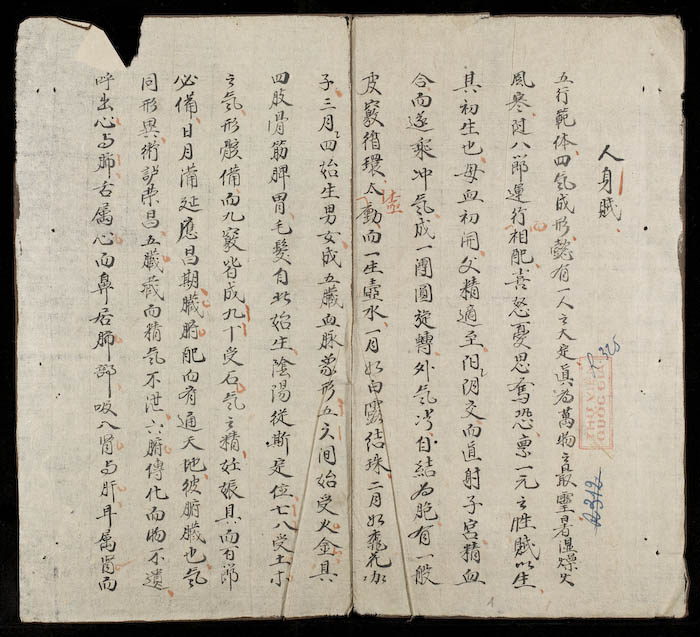 人身賦
五行範体四氣成形懿有一人之大定眞为萬物之最靈者濕燥火
風寒随八節運行相配喜怒憂思奪恐稟一元之性賦以生
具初生也母血初開父精適至阳阴交而直射子宮精血
合而遂乘冲氣成一團圓旋轉外氣自結為胞有一般
皮竅循環太動而一生壺水一月如白露結珠二月如桃花
壺
子三月四始生男女成五臟血脉蒙形五六间始受火金具
四肢骨筋脾胃毛髮自此始生陰陽從斯定位七八受土木
之氣形骸備而九竅皆成九十受石氣之精妊娠具而百節
必備日月滿延應昌期臟腑配而有通天地彼腑臟也氣
同形異術荣昌五臟藏而精氣不泄六腑傳化而物不遺
呼出心与肺舌属心而鼻居肺部吸入腎与肝耳属腎而
THƯ VIỆN
QUỐC GIA